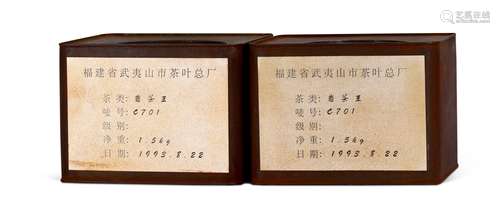 福建省武夷山市茶叶总厂
茶类: 岩茶王
唛号: C701
级别:
净重: 1.5kg
日期: 1993.8.22
福建省武夷山市茶叶总厂
茶类: 岩茶王
唛号: C701
级别:
净重: 1.5kg
日期: 1993.8.22
艺典在线
yidianchina.com